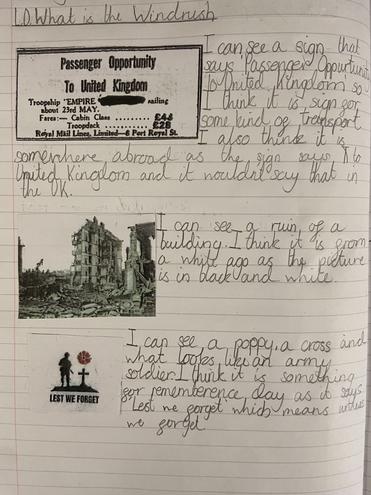 L.O. What is the Windrush
Passenger Opportunity
To United Kingdom
Troopship "EMPIRE sailing
about 23rd MAY.
Fares:— Cabin Class ......... £48
Troopdeck ......... £28
Royal Mail Lines, Limited—8 Port Royal St.
I can see a sign that
says Passenger Oppurtunity
to United Kingdom so
I think it is sign for
some kind of transport
I also think it is
somewhere abroad as the sign says to
United Kingdom and it wouldn't say that in
the UK.
I can see a ruin of a
building. I think it is from
a while ago as the picture
is in black and white.
I can see a poppy, a cross and
what looks like an army
soldier. I think it is something
for rememterence day as it says
"Lest we forget which means
we forget
LEST WE FORGET